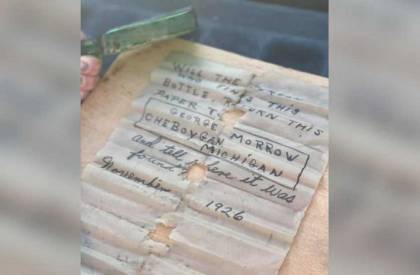 WILL THE PERSON
WHO FINDS THIS
BOTTLE RETURN THIS
PAPER TO
GEORGE MORROW
CHEBOYGAN,
MICHIGAN
And tell where it was
found?
November
1926